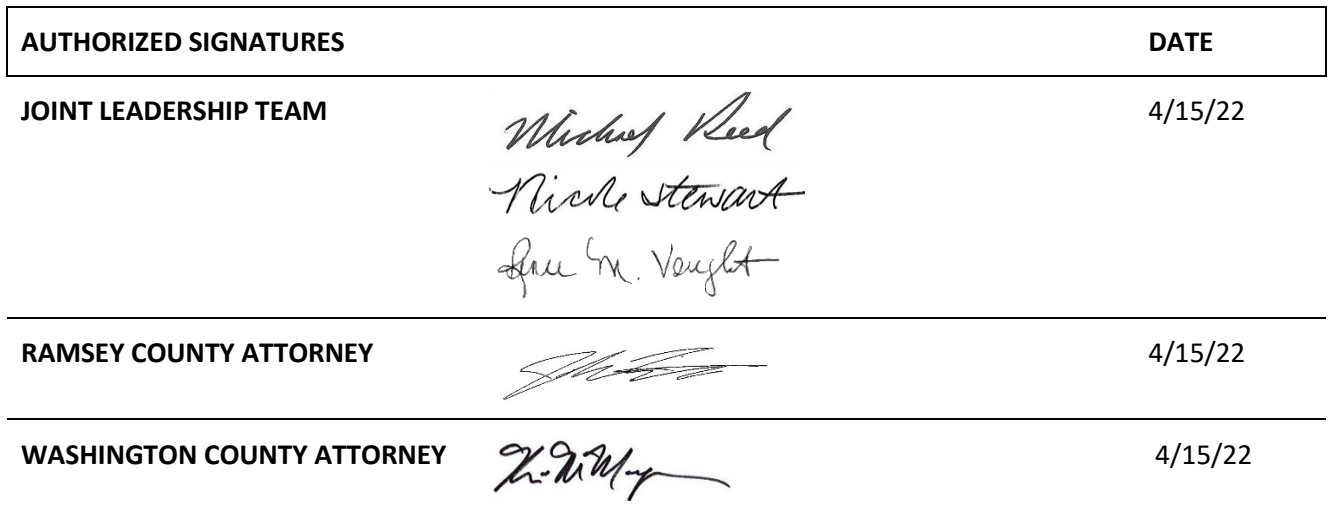 AUTHORIZED SIGNATURES DATE
JOINT LEADERSHIP TEAM Michael Reed 4/15/22
Nicole Stewart
M. Vought
RAMSEY COUNTY ATTORNEY 4/15/22
WASHINGTON COUNTY ATTORNEY 4/15/22